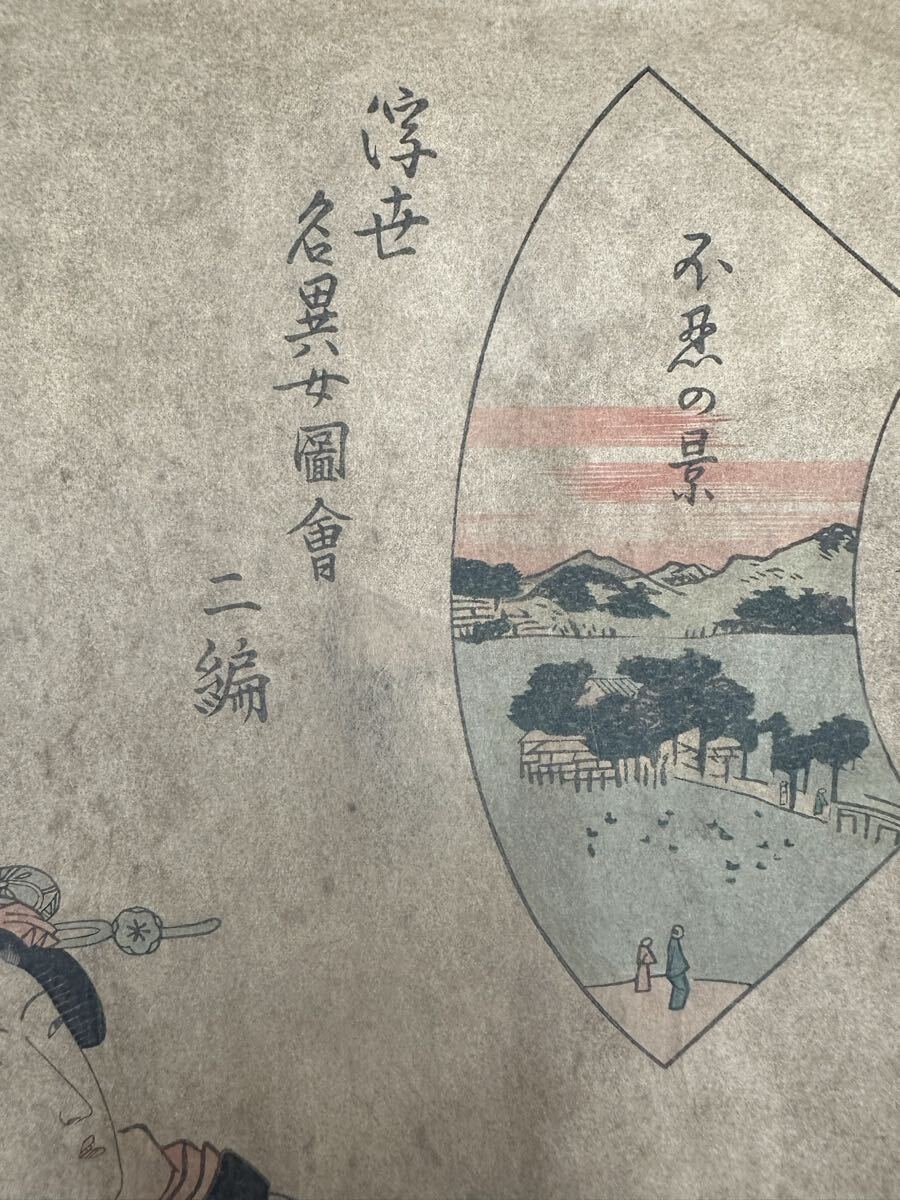 不忍の景
浮世
名異女圖會
二編